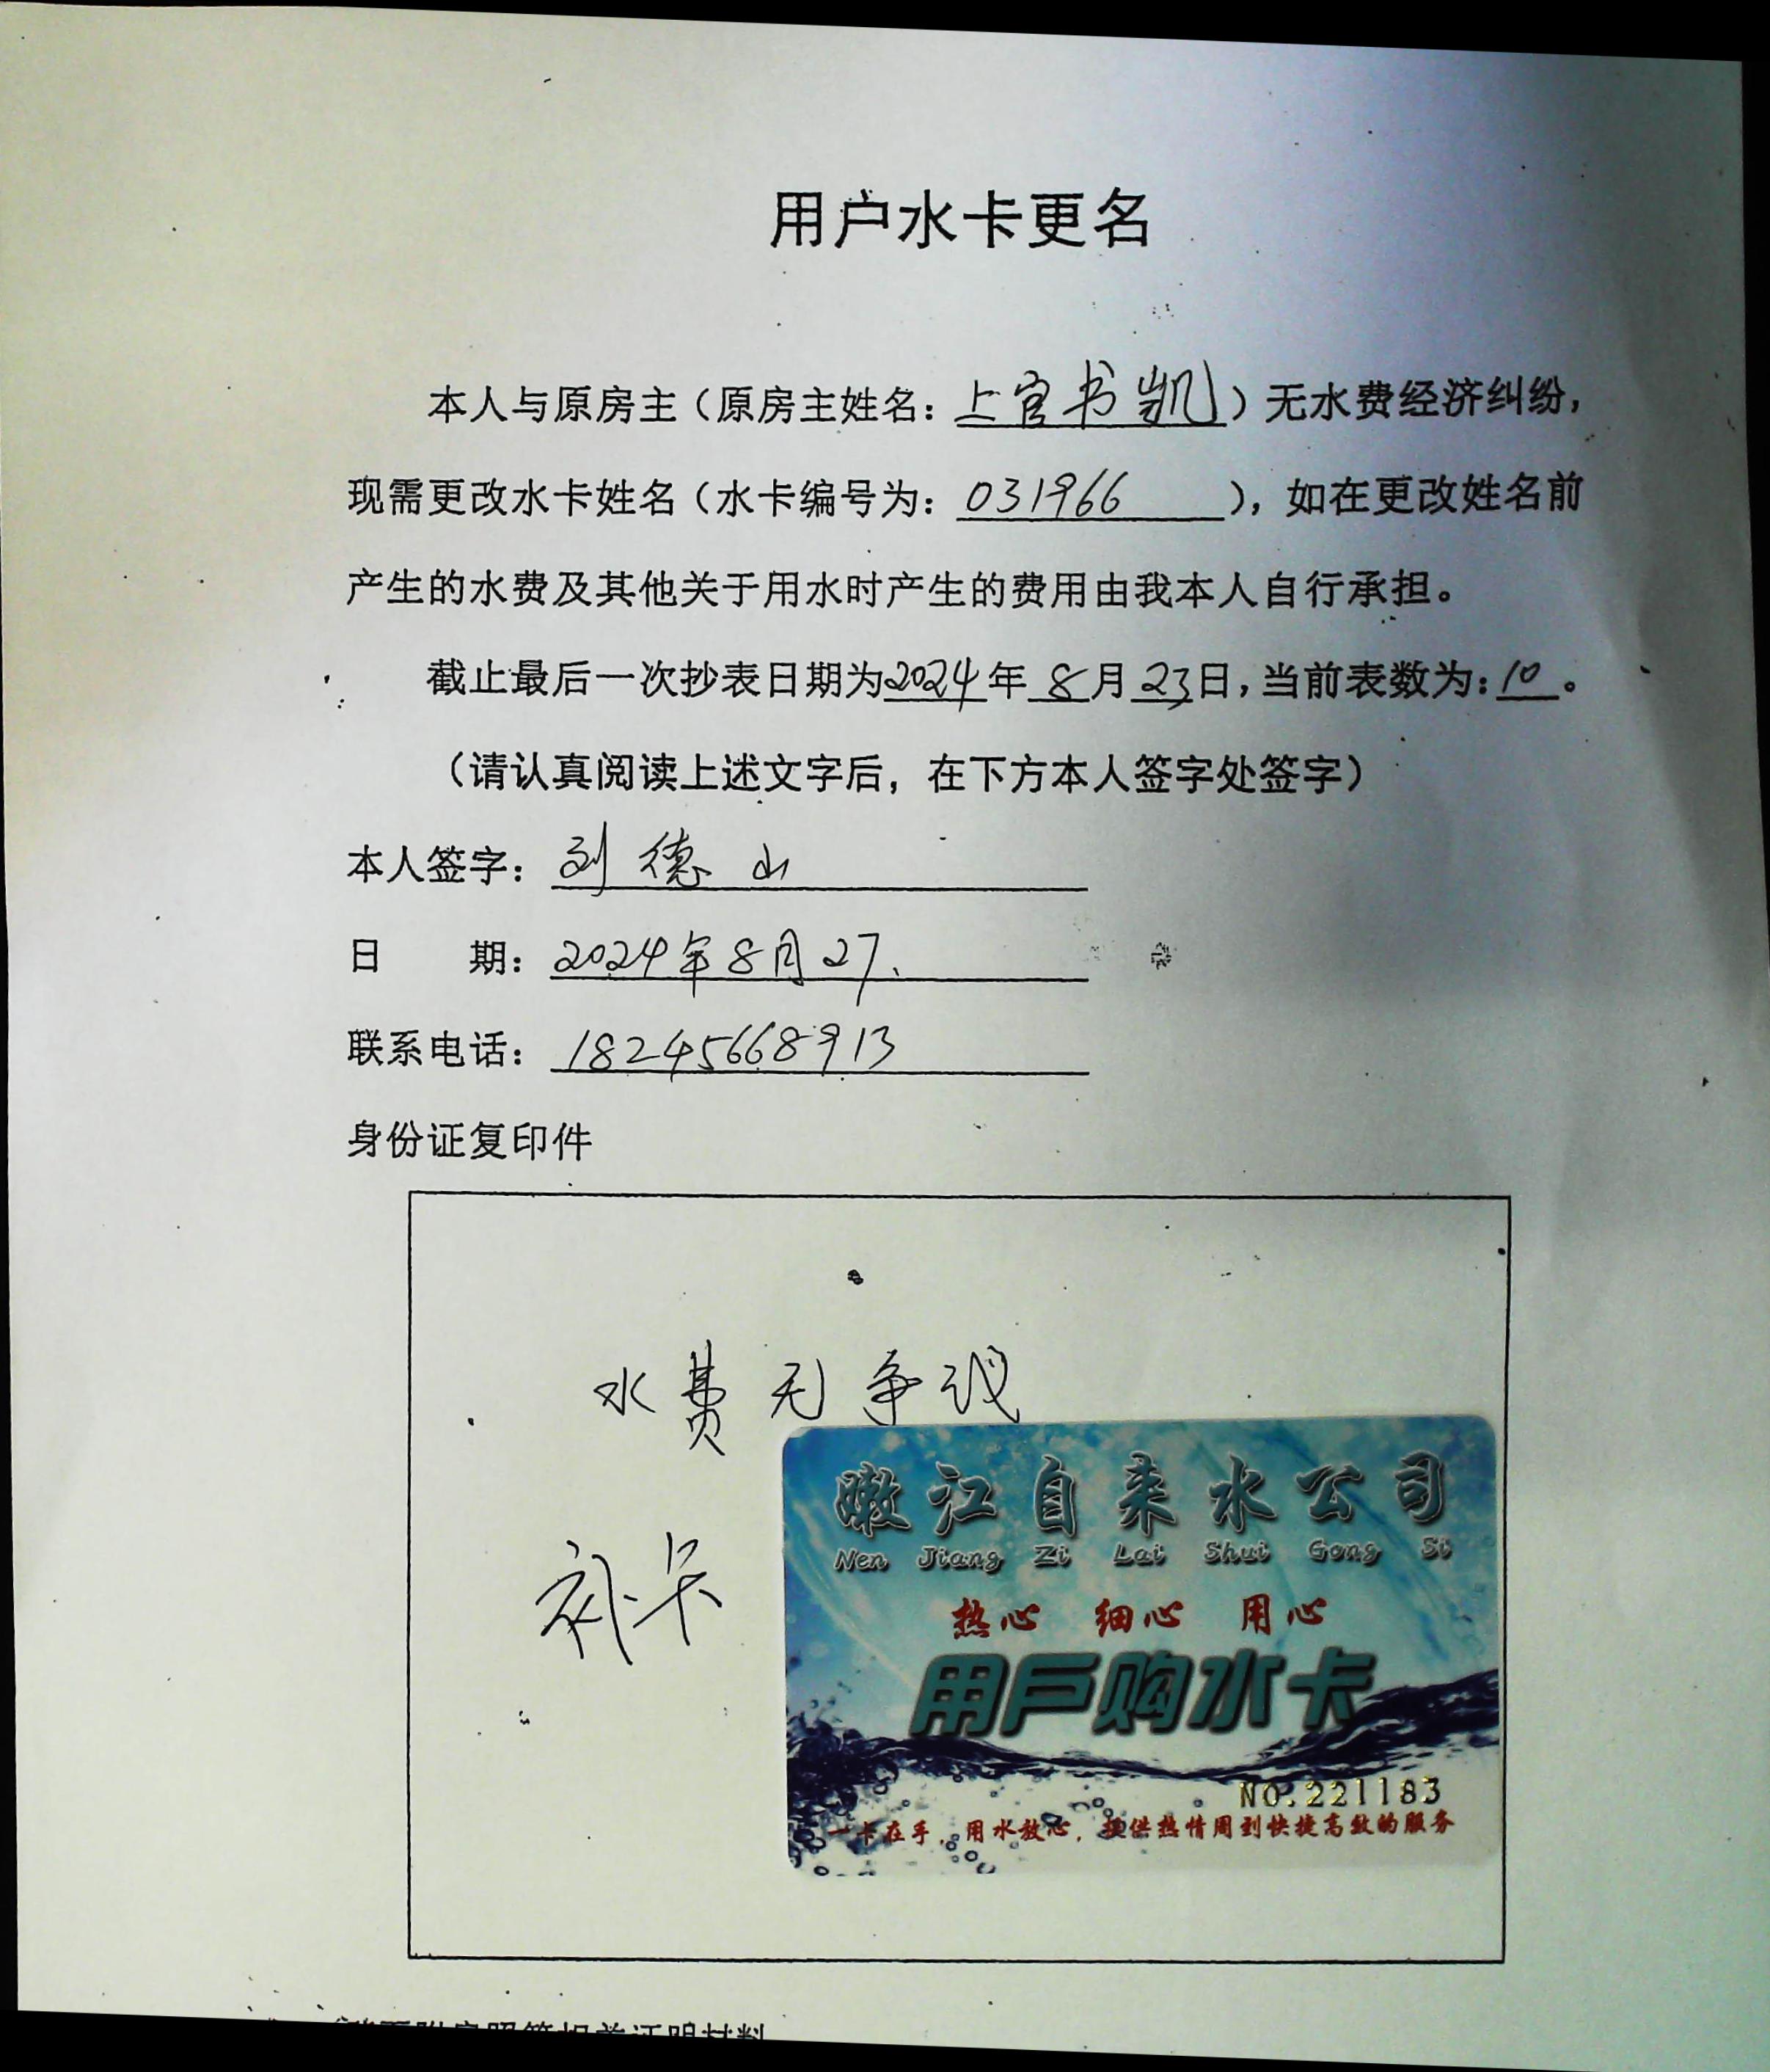 用户水卡更名
本人与原房主（原房主姓名：上官书凯）无水费经济纠纷，
现需更改水卡姓名（水卡编号为：031966），如在更改姓名前
产生的水费及其他关于用水时产生的费用由我本人自行承担。
截止最后一次抄表日期为2024年8月23日，当前表数为：10。
（请认真阅读上述文字后，在下方本人签字处签字）
本人签字：刘德山
日 期：2024年8月27、
联系电话：18245668913
身份证复印件
水费无争议
补卡
嫩江自来水公司
Nen Jiang Zi Lai Shui Gong Si
热心 细心 用心
用户购水卡
NO.221183
一卡在手，用水放心，提供热情周到快捷高效的服务